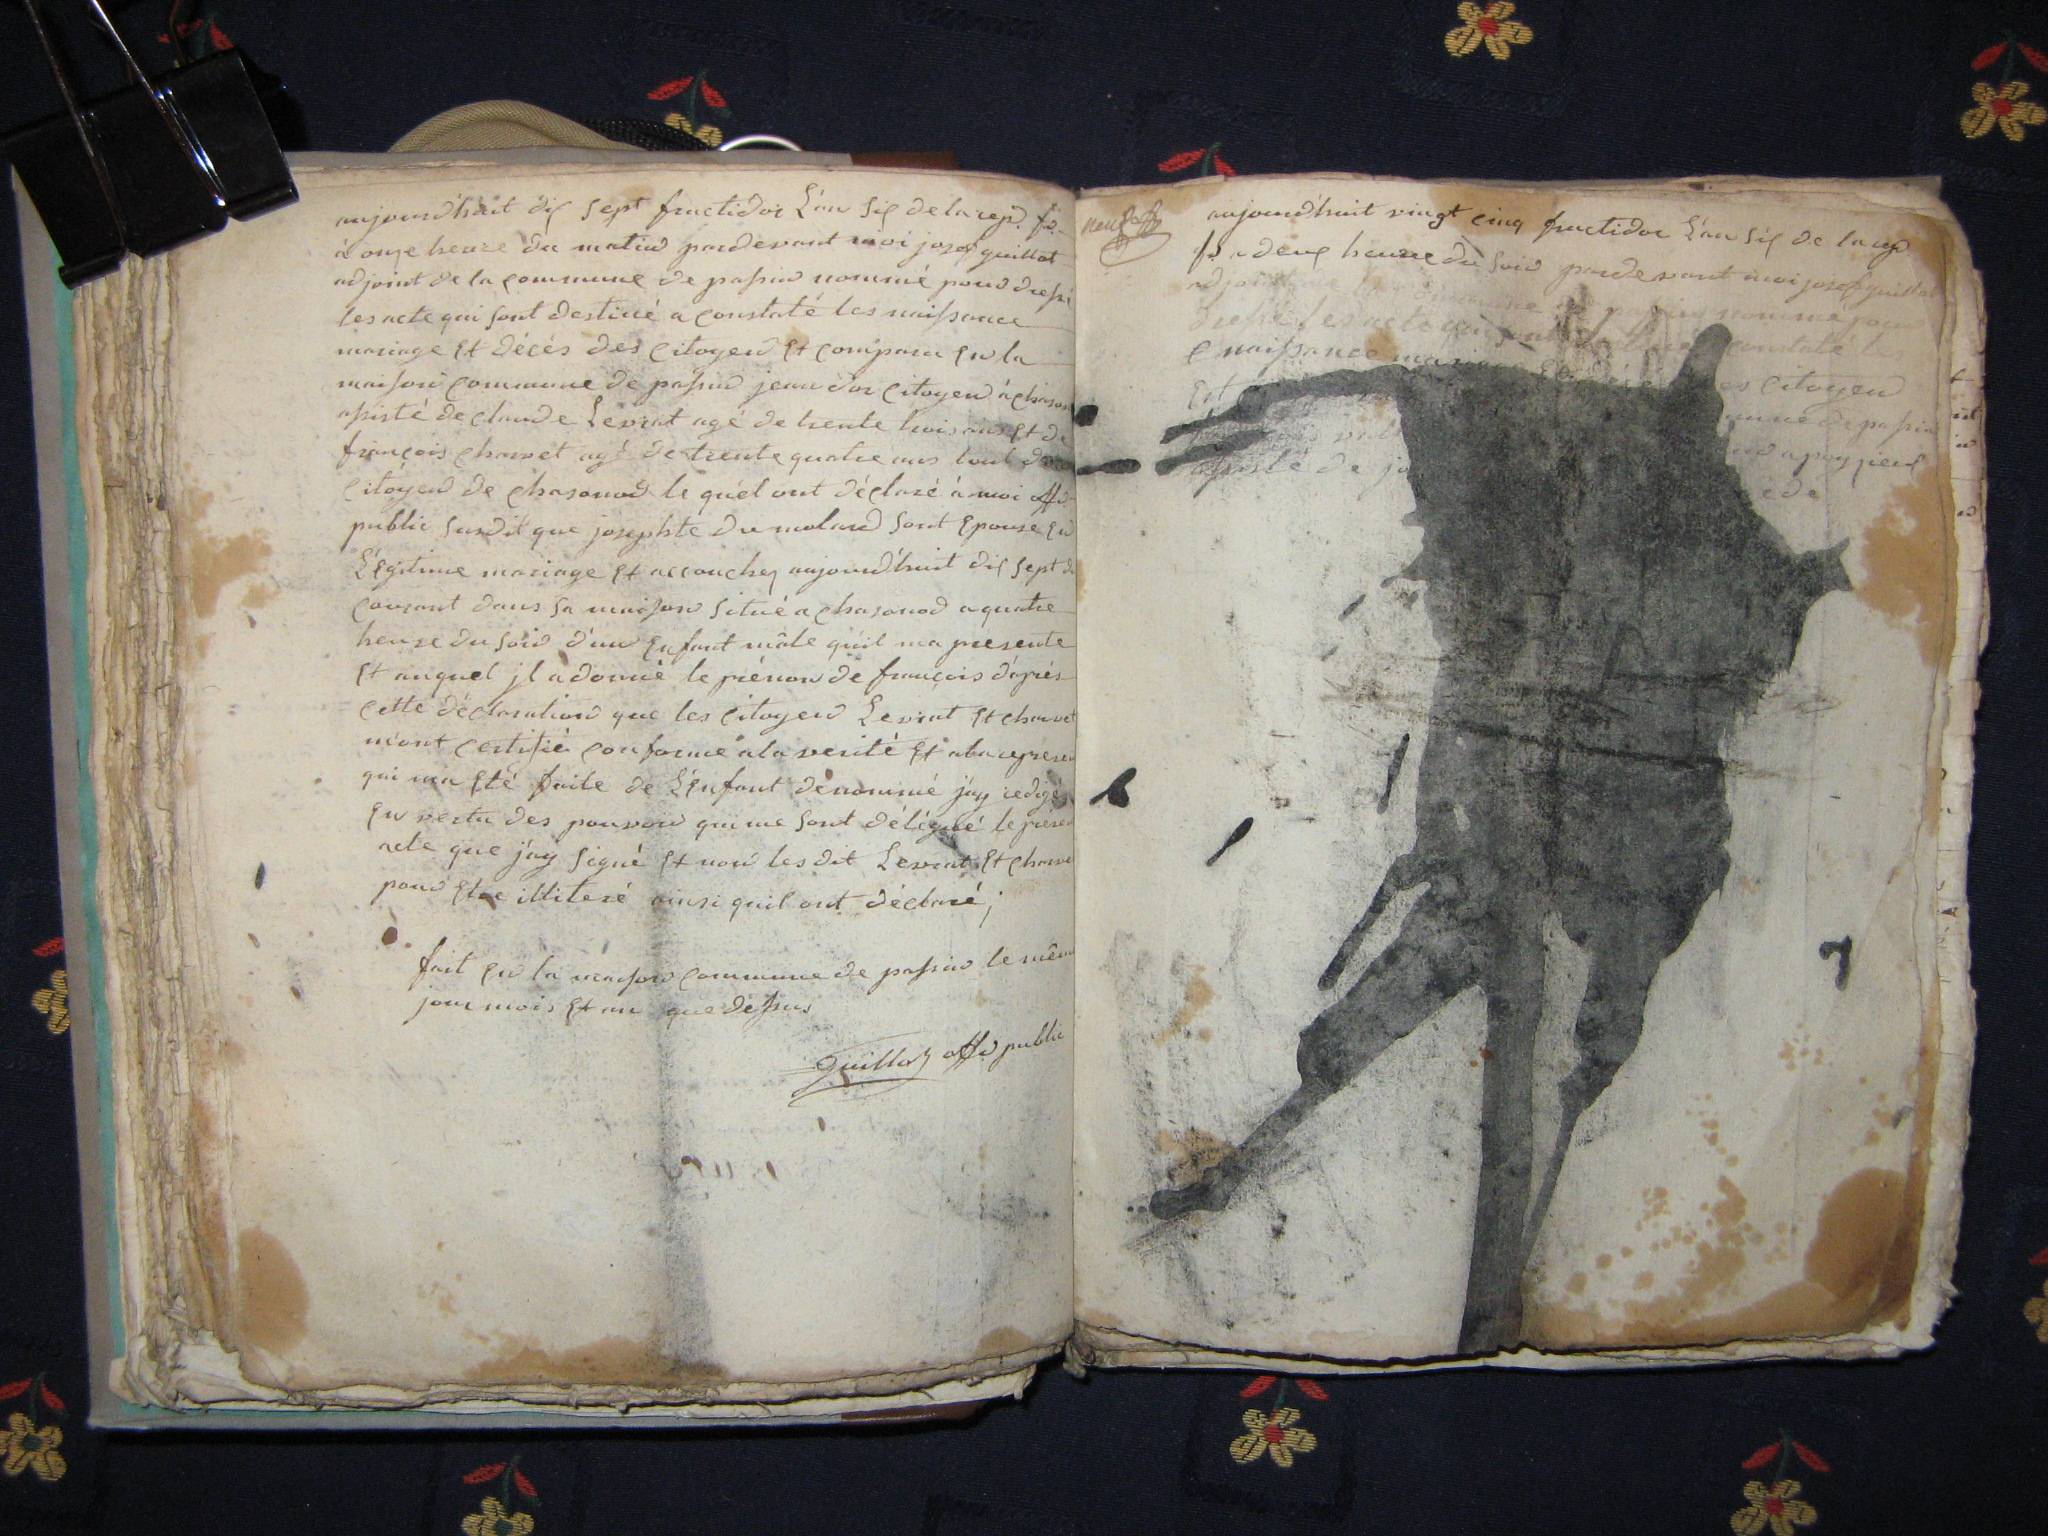 aujourdhuit dix sept fructidor L'an six de la rep. fr.
à onze heure du matin pardevant moi joseph guillot
adjoint de la commune de passin nommé pour dressé
les acte qui sont destiné a constaté les naissance
mariage Et décés des Citoyen Et comparu En la
maison commune de passin jean dor Citoyen à
assisté de claude Levrat agé de trente trois ans Et de
françois charvet agé de trente quatre ans tout deux
Citoyen de chasonod le quel ont déclaré à moi off.
public Susdit que josephte du molard sont Epouse En
Légitime mariage Et accouchez aujourdhuit dix sept du
courant dans sa maison situé a chasonod a quatre
heure du soir d'un Enfant mâle quil ma présente
Et auquel jl a donné le prénom de françois d'aprés
cette déclaration que les Citoyen Levrat Et charvet
m'ont certifié conforme a la verité Et a la represen
qui ma Eté faite de L'Enfant dénommé j'ay redigé
En vertu des pouvoir qui me sont délégué le presen
acte que j'ay signé Et non les dit Levrat Et charve
pour Etre illiteré ainsi quil ont déclaré ;
fait En la maison commune de passin le même
jour mois Et an que dessus
Guillot off. public
aujourdhuit vingt cinq fructidor L'an six de la rep
fr. a deux heure du soir pardevant moi joseph guillot
adjoint de la commune de passin nommé pour
dressé les acte qui sont destiné a constaté l
e naissance mariage Et décés des Citoyen
Et commune de passin
assisté de jo